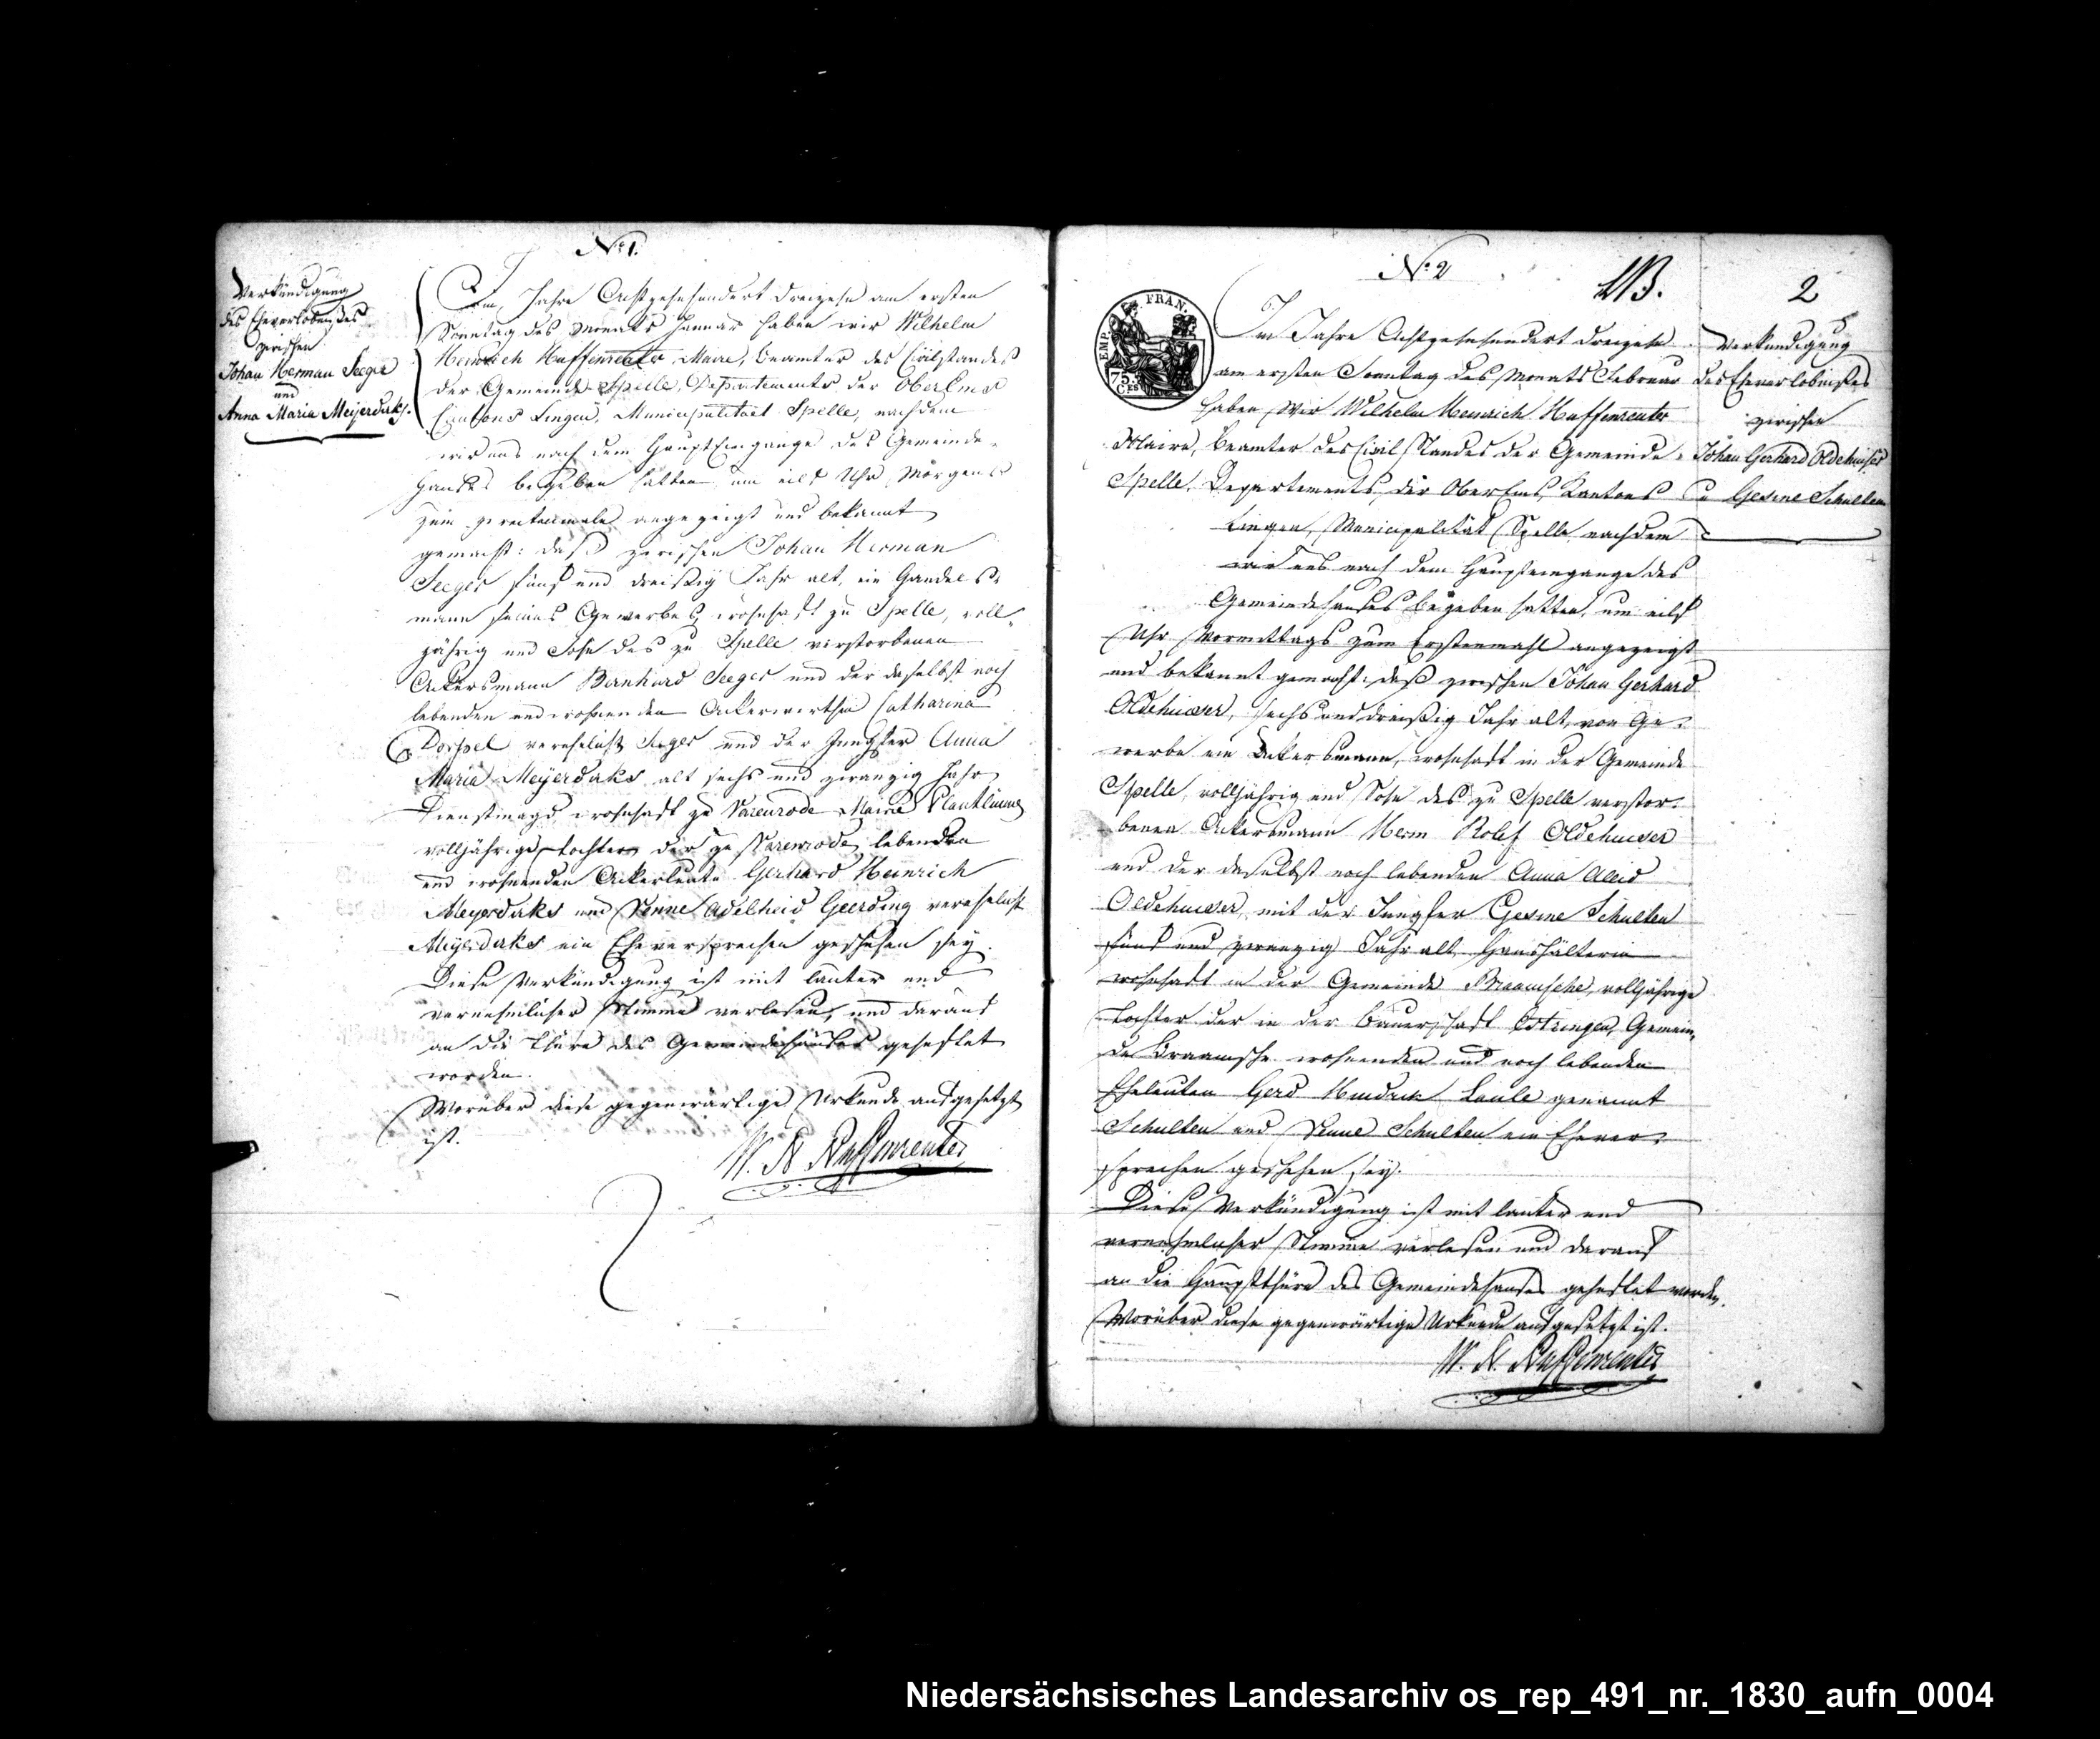 No 1.
Verkündigung
des Eheverlobnißes
zwischen
Johan Herman Seeger
und
Anna Maria Meyerdirks.
Im Jahre Achtzehnhundert dreizehn am ersten
Sonntag des Monats Januar haben wir Wilhelm
Heinrich Ruffenreuter, Maire, Beamter des Civilstandes
der Gemeinde Spelle, Departements der OberEms
Cantons Lingen, Municipalitaet Spelle, nachdem
wir uns nach dem HauptEingange des Gemeinde-
Hauses begeben hatten um eilf Uhr Morgens
zum zweitenmale angezeigt und bekannt
gemacht: daß zwischen Johan Herman
Seeger fünf und dreißig Jahr alt, ein Handels-
mann seines Gewerbes wohnhaft zu Spelle, voll-
jährig und Sohn des zu Spelle verstorbenen
Ackersmann Bernhard Seeger und der daselbst noch
lebenden und wohnenden Ackerwirthin Catharina
verehelicht Seeger und der Jungfer Anna
Maria Meyerdirks alt sechs und zwanzig Jahr
Dienstmagd, wohnhaft zu Varenrode Mairie Plantlünne
volljährige Tochter der zu Varenrode lebenden
und wohnenden Ackerleute Gerhard Heinrich
Meyerdirks und Venne Adelheid Geerding verehelicht
Meyerdirks ein Eheversprechen geschehen sey.
Diese Verkündigung ist mit lauter und
vernehmlicher Stimme verlesen, und darauf
an die Thüre des Gemeindehauses geheftet
worden.
Worüber diese gegenwärtige Urkunde aufgesetzt
ist.
W. H. Ruffenreuter
No 2
2
EMP. FRAN.
75.
C.ES
Im Jahre Achtzehnhundert dreizehn
am ersten Sonntag des Monats Februar
haben Wir Wilhelm Heinrich Ruffenreuter
Maire, Beamter des Civil Standes der Gemeinde
Spelle, Departements der OberEms, Kantons
Lingen, Municipalität Spelle nachdem
wir uns nach dem Haupteingange des
Gemeindehauses begeben hatten, um eilf
Uhr Vormittags zum Erstenmahl angezeigt
und bekannt gemacht: daß zwischen Johan Gerhard
Oldehuiser, sechs und dreißig Jahr alt, von Ge-
werbe ein Ackersmann, wohnhaft in der Gemeinde
Spelle, volljährig und Sohn des zu Spelle verstor-
benen Ackersmann Herm Rolef Oldehuiser
und der daselbst noch lebenden Anna Aleid
Oldehuiser, mit der Jungfer Gesine Schulten
fünf und zwanzig Jahr alt, Haushälterin
wohnhaft in der Gemeinde Braamsche, volljährige
Tochter der in der Bauerschaft Estringen, Gemein-
de Braamsche wohnenden und noch lebenden
Eheleuten Gerd Hindrik Laule genannt
Schulten und Venne Schulten ein Ehever-
sprechen geschehen sey.
Diese Verkündigung ist mit lauter und
vernehmlicher Stimme verlesen und darauf
an die Hauptthüre des Gemeindehauses geheftet worden.
Worüber diese gegenwärtige Urkunde aufgesetzt ist.
W. H. Ruffenreuter
Verkündigung
des Eheverlobnißes
zwischen
Johan Gerhard Oldehuiser
u Gesine Schulten
Niedersächsisches Landesarchiv os_rep_491_nr._1830_aufn_0004